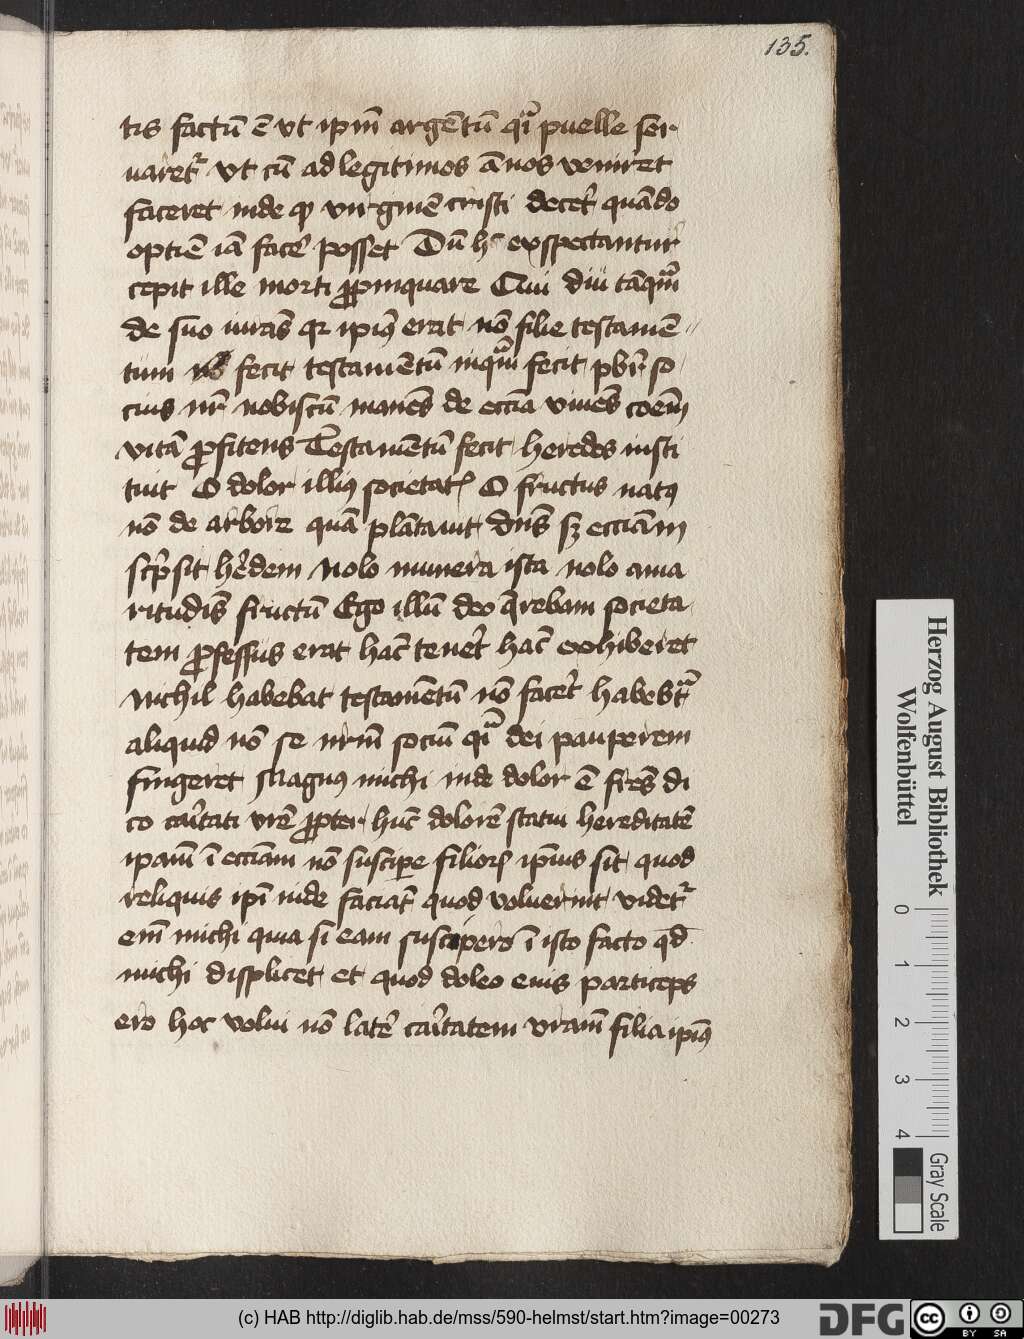 135.
tis factū ē vt ipm̄ argētū qi puelle ser
uaret᷑ vt cū ad legitimos ānos veniret
faceret inde qͦ virginē cristi decet᷑ quādo
optiē iā face᷑ posset Dū hͨ exspectantur
cepit ille morti ꝓpinquare Cui diu tāqͣm
de suo iurās qꝛ ipiꝰ erat nō filie testamē
tum fecit testamētū inqͣm fecit pbr̄ so
cius nr̄ nobiscū manēs de eccīa viuēs cōem̄
vitā ꝓfitens Testamētū fecit heredes insti
tuit O dolor illiꝰ societatꝭ O fructus natꝰ
nō de arbore quā plātauit dn̄s sꝫ ecciāȝ
scͥpsit he᷑dem Nolo munera ista nolo ama
ritudīs fructū Ego illū deo q̄rebam societa
tem ꝓfessus erat hāc tenet᷑ hāc exhiberet
Nichil habebat testamētū nō facet᷑ habebat᷑
aliquid nō se nrm̄ sociū qͣi dei pauperem
fingeret Magnꝰ michi inde dolor ē frēs di
co ca᷑itati vrē ꝓpter hūc dolorē statui hereditatē
ipam̄ ī ecciam nō suscipe filioꝝ ipīus sit quod
reliquis ipī inde faciāt quod voluerint videt᷑
em̄ michi quia si eam suscipero ī isto facto qd̄
michi displicet et quod doleo eius particeps
ero hoc volui nō late᷑ ca᷑itatem vram̄ filia ipīꝰ
Herzog August Bibliothek
Wolfenbüttel
0
1
2
3
4
Gray Scale
(c) HAB http://diglib.hab.de/mss/590-helmst/start.htm?image=00273
DFG
cc
BY SA